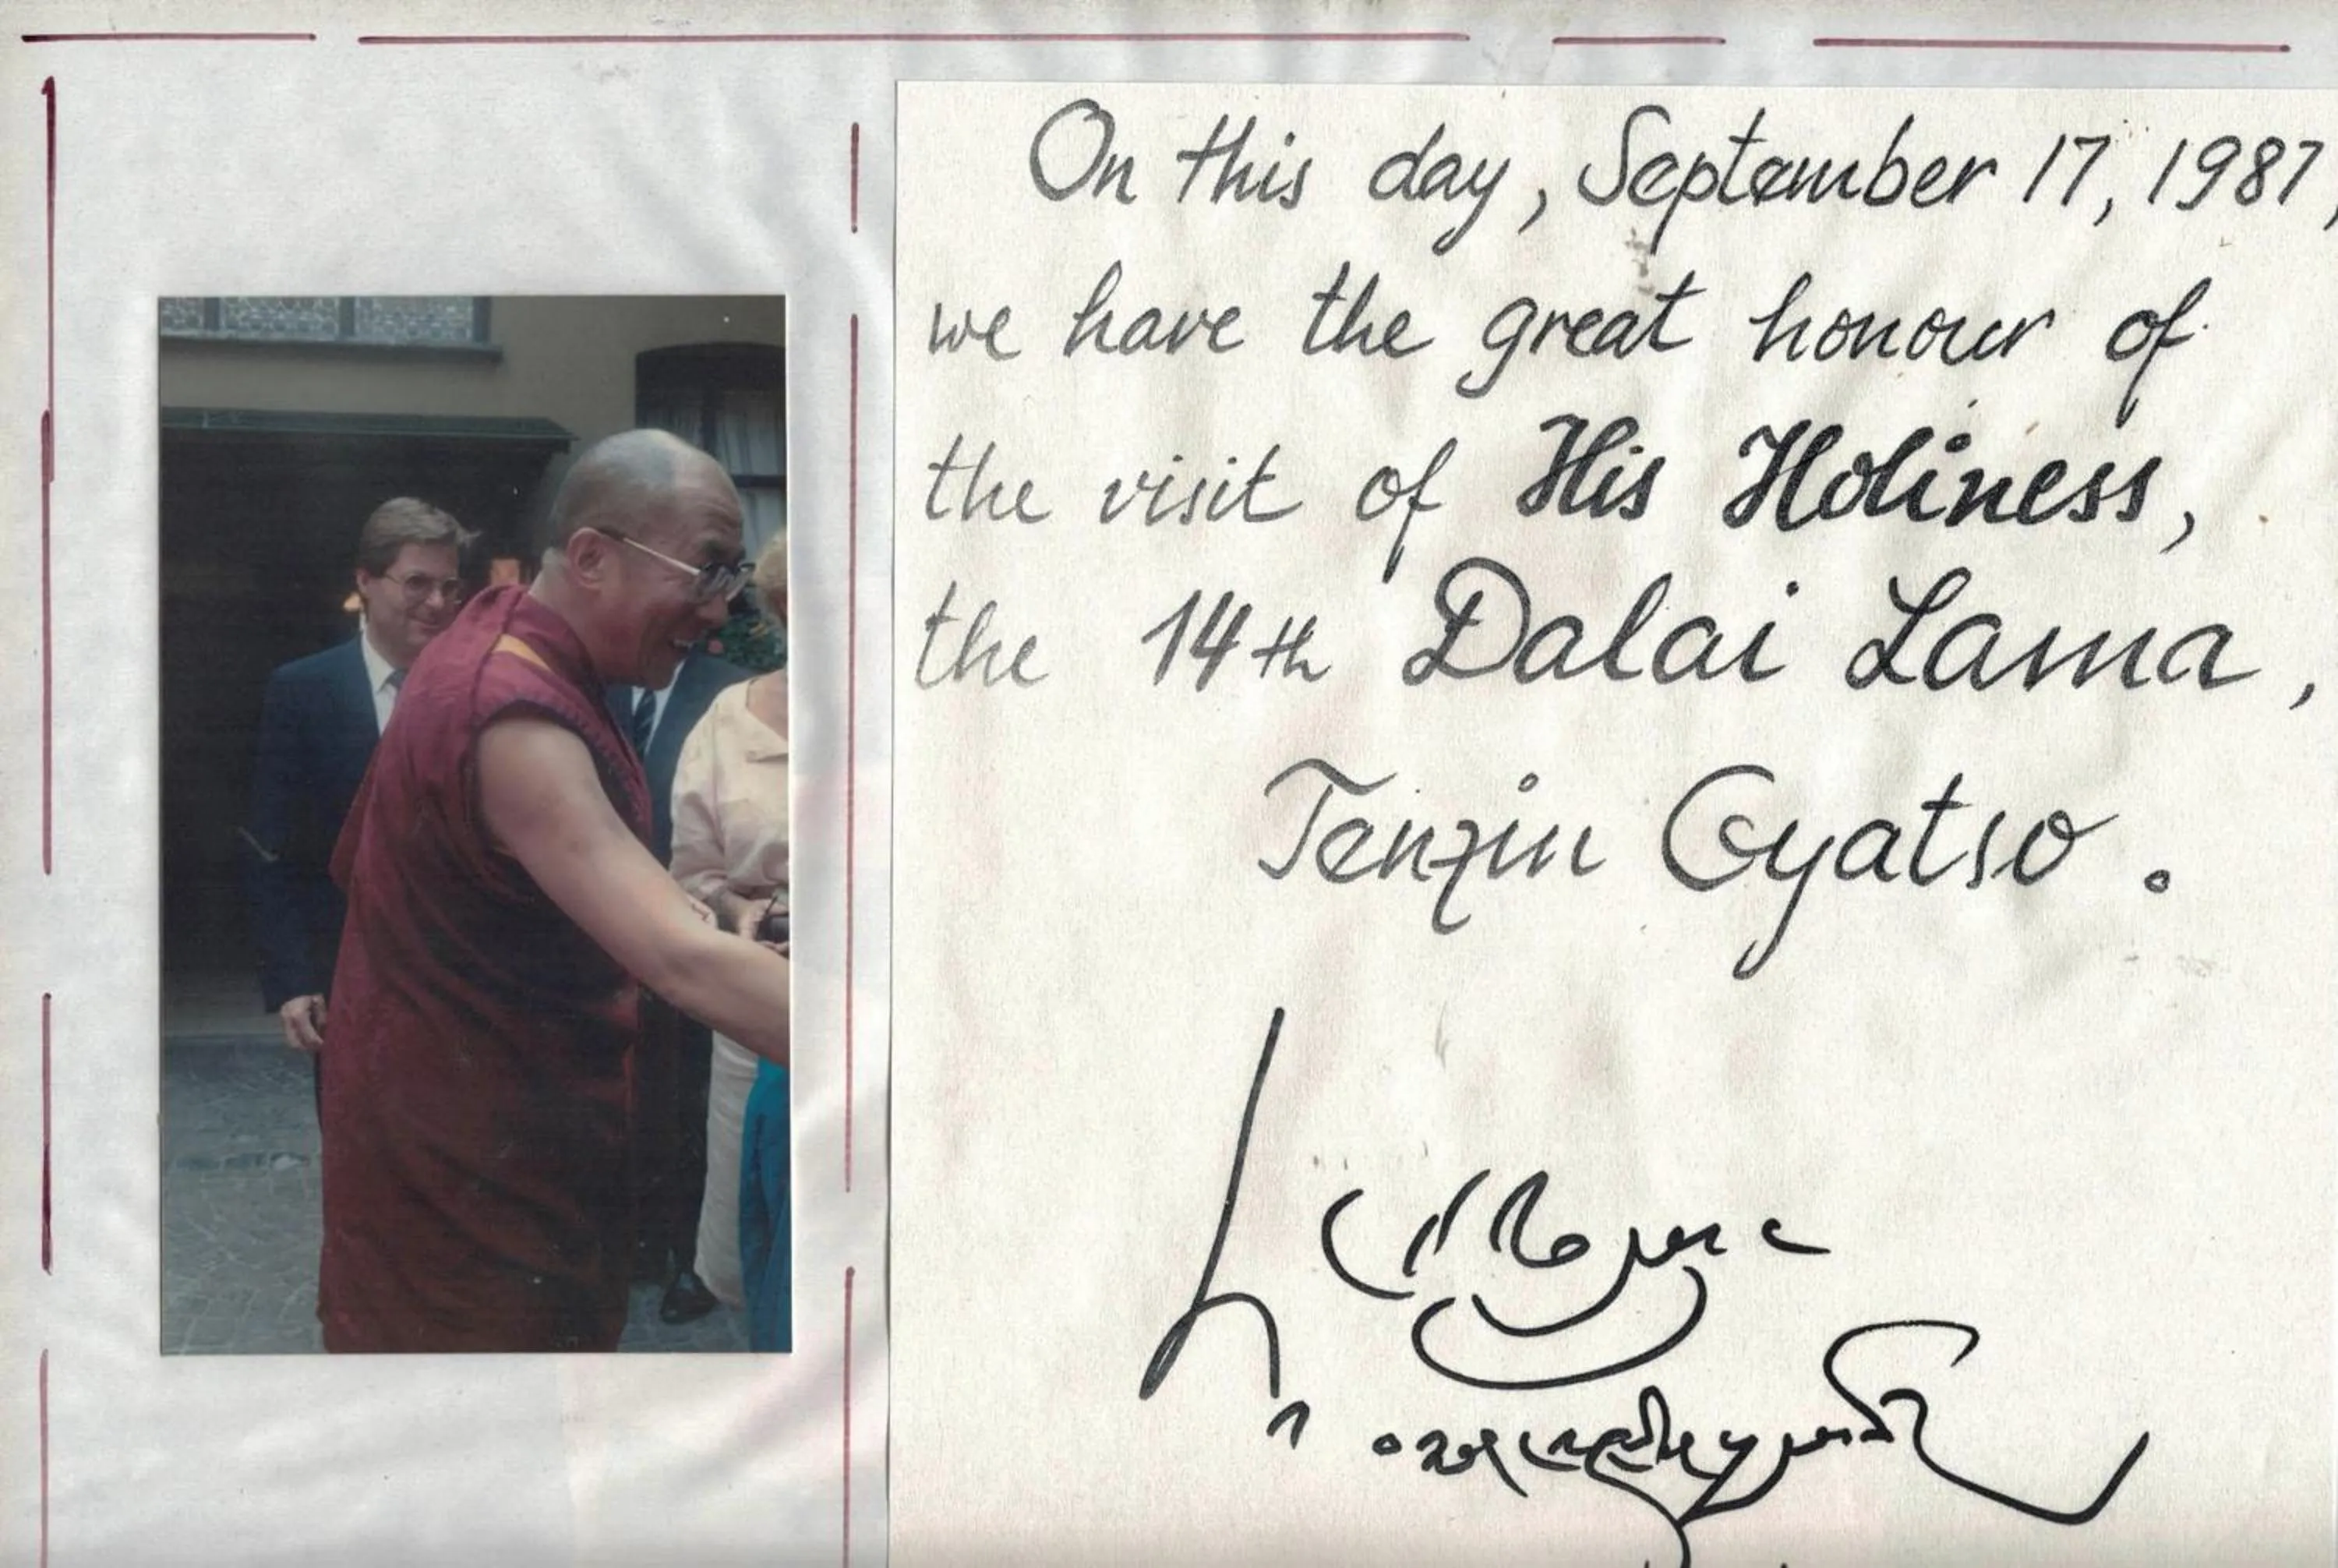 On this day, September 17, 1987,
we have the great honour of
the visit of His Holiness,
the 14th Dalai Lama,
Tenzin Gyatso.